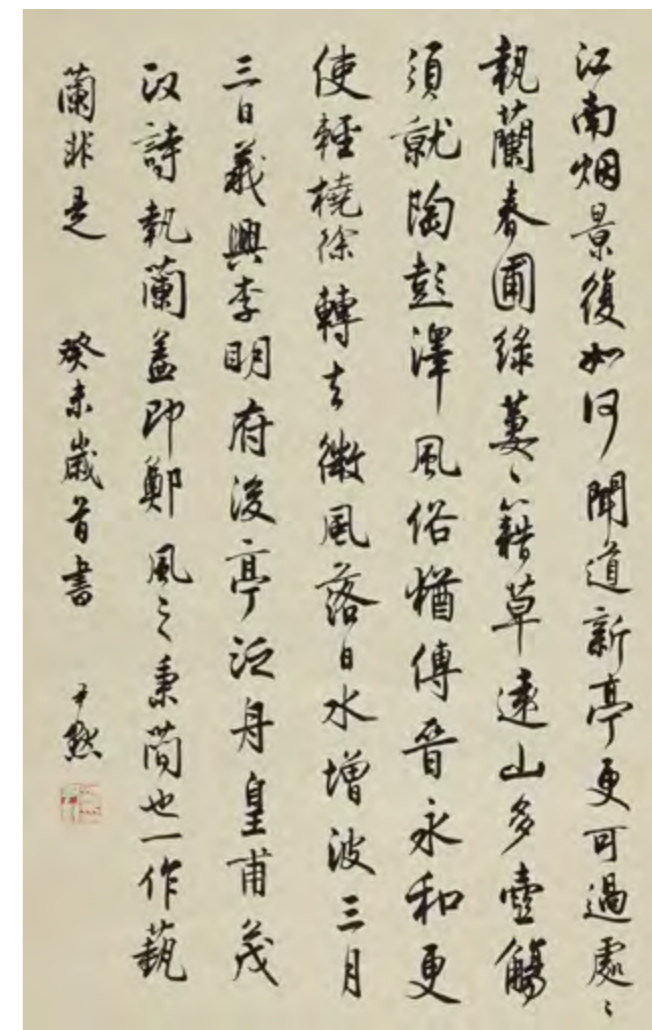 江南烟景復如何聞道新亭更可過處〻
執蘭春圃綠萋〻籍草遠山多壺觴
須就陶彭澤風俗猶傳晉永和更
使輕橈徐轉去微風落日水增波三月
三日義興李明府後亭泛舟皇甫茂
政詩執蘭蓋即鄭風之秉蕑也一作藝
蘭非是 癸未歲首書 尹默